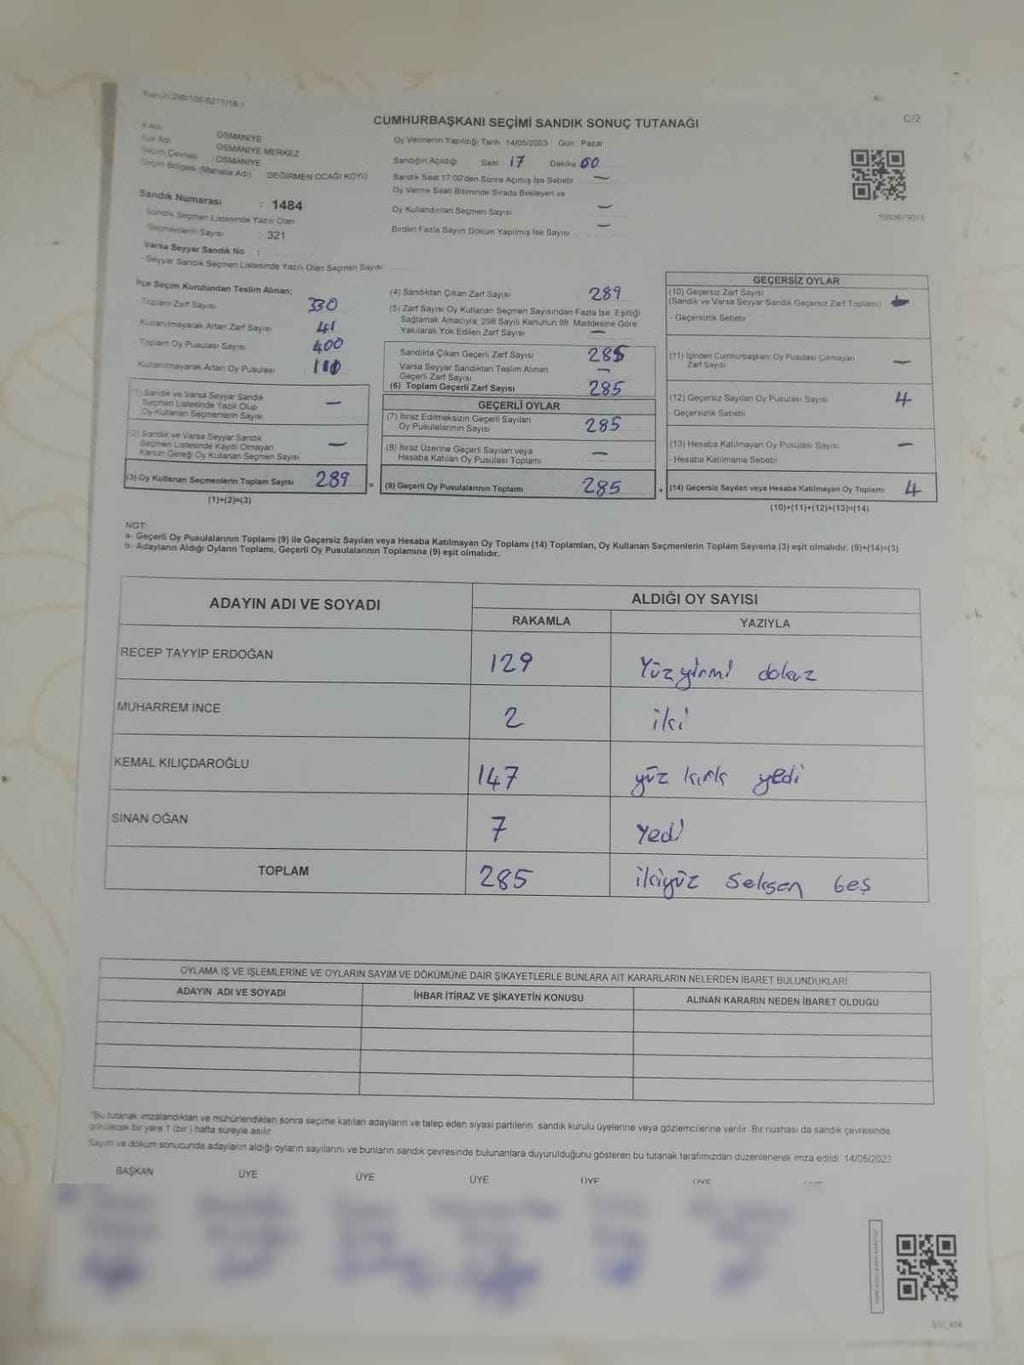 CUMHURBAŞKANI SEÇİMİ SANDIK SONUÇ TUTANAĞI
C/2
OSMANİYE
OSMANİYE MERKEZ
OSMANİYE
Seçim Bölgesi (Mahalle Adı) DEĞİRMEN OCAĞI KÖYÜ
Sandık Numarası : 1484
Sandık Seçmen Listesinde Yazılı Olan
Seçmenlerin Sayısı : 321
Varsa Seyyar Sandık No :
Seyyar Sandık Seçmen Listesinde Yazılı Olan Seçmen Sayısı
Oy Vermenin Yapıldığı Tarih 14/05/2023 Gün Pazar
Sandığın Açıldığı Saat 17 Dakika 00
Sandık Saat 17:00'den Sonra Açılmış İse Sebebi —
Oy Verme Saati Bitiminde Sırada Bekleyen ve
Oy Kullandırılan Seçmen Sayısı —
Birden Fazla Sayım Döküm Yapılmış İse Sayısı —
İlçe Seçim Kurulundan Teslim Alınan;
Toplam Zarf Sayısı 330
Kullanılmayarak Artan Zarf Sayısı 41
Toplam Oy Pusulası Sayısı 400
Kullanılmayarak Artan Oy Pusulası
(1) Sandık ve Varsa Seyyar Sandık
Seçmen Listesinde Yazılı Olup
Oy Kullanan Seçmenlerin Sayısı —
(2) Sandık ve Varsa Seyyar Sandık
Seçmen Listesinde Kayıtlı Olmayan
Kanun Gereği Oy Kullanan Seçmen Sayısı —
(3) Oy Kullanan Seçmenlerin Toplam Sayısı 289 =
(1)+(2)=(3)
(4) Sandıktan Çıkan Zarf Sayısı 289
(5) Zarf Sayısı Oy Kullanan Seçmen Sayısından Fazla İse, Eşitliği
Sağlamak Amacıyla, 298 Sayılı Kanunun 98. Maddesine Göre
Yakılarak Yok Edilen Zarf Sayısı —
Sandıkta Çıkan Geçerli Zarf Sayısı 285
Varsa Seyyar Sandıktan Teslim Alınan
Geçerli Zarf Sayısı —
(6) Toplam Geçerli Zarf Sayısı 285
GEÇERLİ OYLAR
(7) İtiraz Edilmeksizin Geçerli Sayılan
Oy Pusulalarının Sayısı 285
(8) İtiraz Üzerine Geçerli Sayılan veya
Hesaba Katılan Oy Pusulası Toplamı —
(9) Geçerli Oy Pusulalarının Toplamı 285 +
GEÇERSİZ OYLAR
(10) Geçersiz Zarf Sayısı
(Sandık ve Varsa Seyyar Sandık Geçersiz Zarf Toplamı) —
- Geçersizlik Sebebi
(11) İçinden Cumhurbaşkanı Oy Pusulası Çıkmayan
Zarf Sayısı —
(12) Geçersiz Sayılan Oy Pusulası Sayısı 4
- Geçersizlik Sebebi
(13) Hesaba Katılmayan Oy Pusulası Sayısı —
- Hesaba Katılmama Sebebi
(14) Geçersiz Sayılan veya Hesaba Katılmayan Oy Toplamı 4
(10)+(11)+(12)+(13)=(14)
NOT:
a- Geçerli Oy Pusulalarının Toplamı (9) ile Geçersiz Sayılan veya Hesaba Katılmayan Oy Toplamı (14) Toplamları, Oy Kullanan Seçmenlerin Toplam Sayısına (3) eşit olmalıdır. (9)+(14)=(3)
b- Adayların Aldığı Oyların Toplamı, Geçerli Oy Pusulalarının Toplamına (9) eşit olmalıdır.
ADAYIN ADI VE SOYADI
ALDIĞI OY SAYISI
RAKAMLA YAZIYLA
RECEP TAYYİP ERDOĞAN 129 Yüz yirmi dokuz
MUHARREM İNCE 2 iki
KEMAL KILIÇDAROĞLU 147 yüz kırk yedi
SİNAN OĞAN 7 Yedi
TOPLAM 285 ikiyüz seksen beş
OYLAMA İŞ VE İŞLEMLERİNE VE OYLARIN SAYIM VE DÖKÜMÜNE DAİR ŞİKAYETLERLE BUNLARA AİT KARARLARIN NELERDEN İBARET BULUNDUKLARI
ADAYIN ADI VE SOYADI İHBAR İTİRAZ VE ŞİKAYETİN KONUSU ALINAN KARARIN NEDEN İBARET OLDUĞU
"Bu tutanak imzalandıktan ve mühürlendikten sonra seçime katılan adayların ve talep eden siyasi partilerin, sandık kurulu üyelerine veya gözlemcilerine verilir. Bir nüshası da sandık çevresinde
görülecek bir yere 1 (bir) hafta süreyle asılır.
Sayım ve döküm sonucunda adayların aldığı oyların sayılarını ve bunların sandık çevresinde bulunanlara duyurulduğunu gösteren bu tutanak tarafımızdan düzenlenerek imza edildi. 14/05/2023
BAŞKAN ÜYE ÜYE ÜYE ÜYE ÜYE